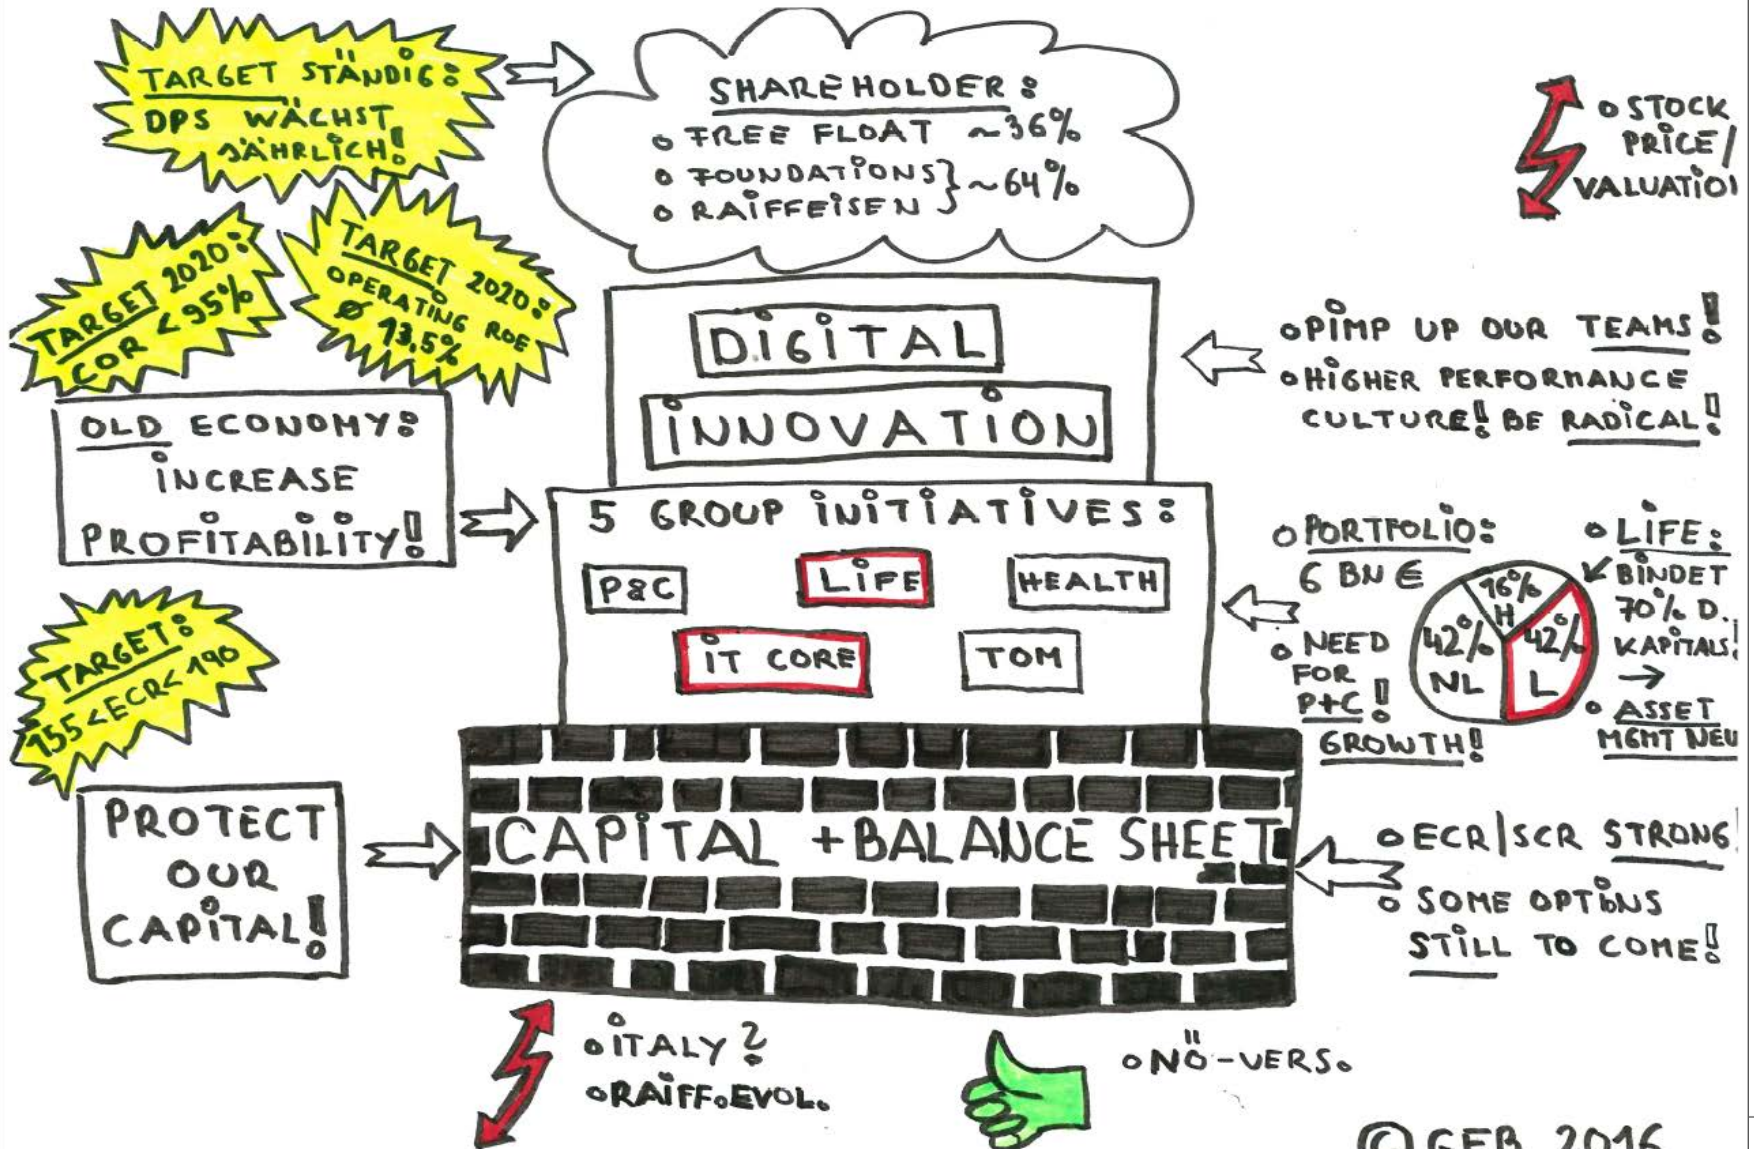 TARGET STÄNDIG:
DPS WÄCHST
JÄHRLICH!
SHAREHOLDER:
o FREE FLOAT ~36%
o FOUNDATIONS } ~64%
o RAIFFEISEN
o STOCK
PRICE/
VALUATIO
TARGET 2020:
COR < 95%
TARGET 2020:
OPERATING ROE
Ø 13,5%
DIGITAL
INNOVATION
o PIMP UP OUR TEAMS!
o HIGHER PERFORMANCE
CULTURE! BE RADICAL!
OLD ECONOMY:
INCREASE
PROFITABILITY!
5 GROUP INITIATIVES:
P&C
LIFE
HEALTH
IT CORE
TOM
o PORTFOLIO:
6 BN €
o NEED
FOR
P+C!
GROWTH!
16%
H
42%
NL
42%
L
o LIFE:
BINDET
70% D.
KAPITALS!
o ASSET
MGMT NEU
TARGET:
155 < ECR < 190
PROTECT
OUR
CAPITAL!
CAPITAL + BALANCE SHEET
o ECR/SCR STRONG
o SOME OPTIONS
STILL TO COME!
o ITALY?
o RAIFF.EVOL.
o NÖ-VERS.
© GEB 2016